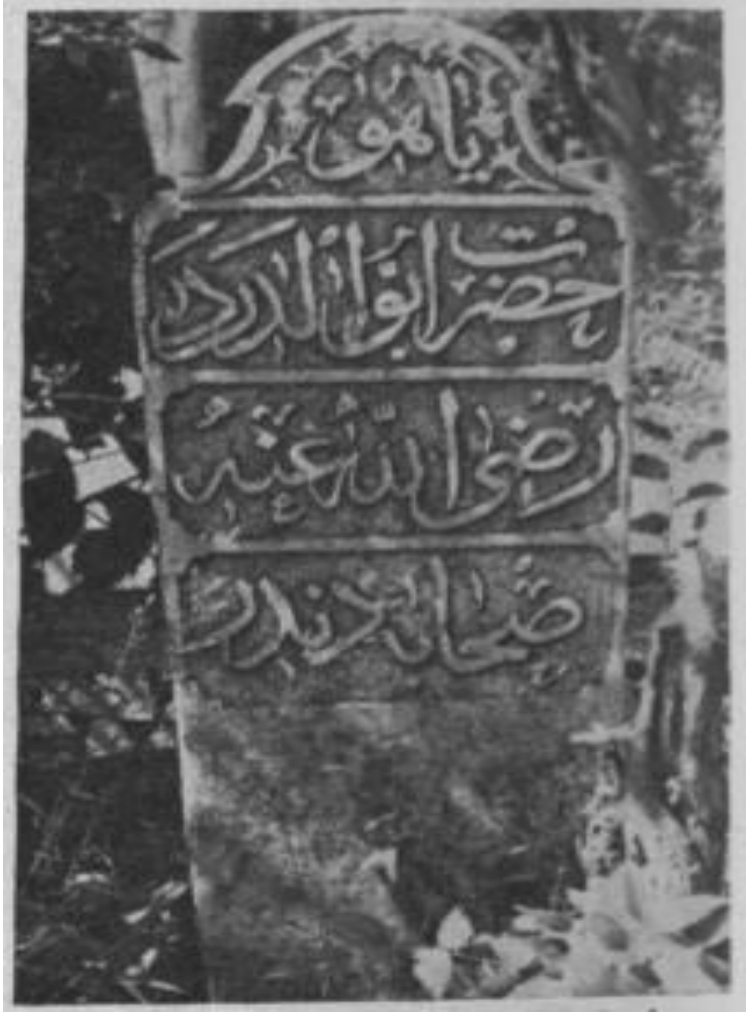 يا هو
حضرت ابو الدردا
رضى الله عنه
صحابه دندر